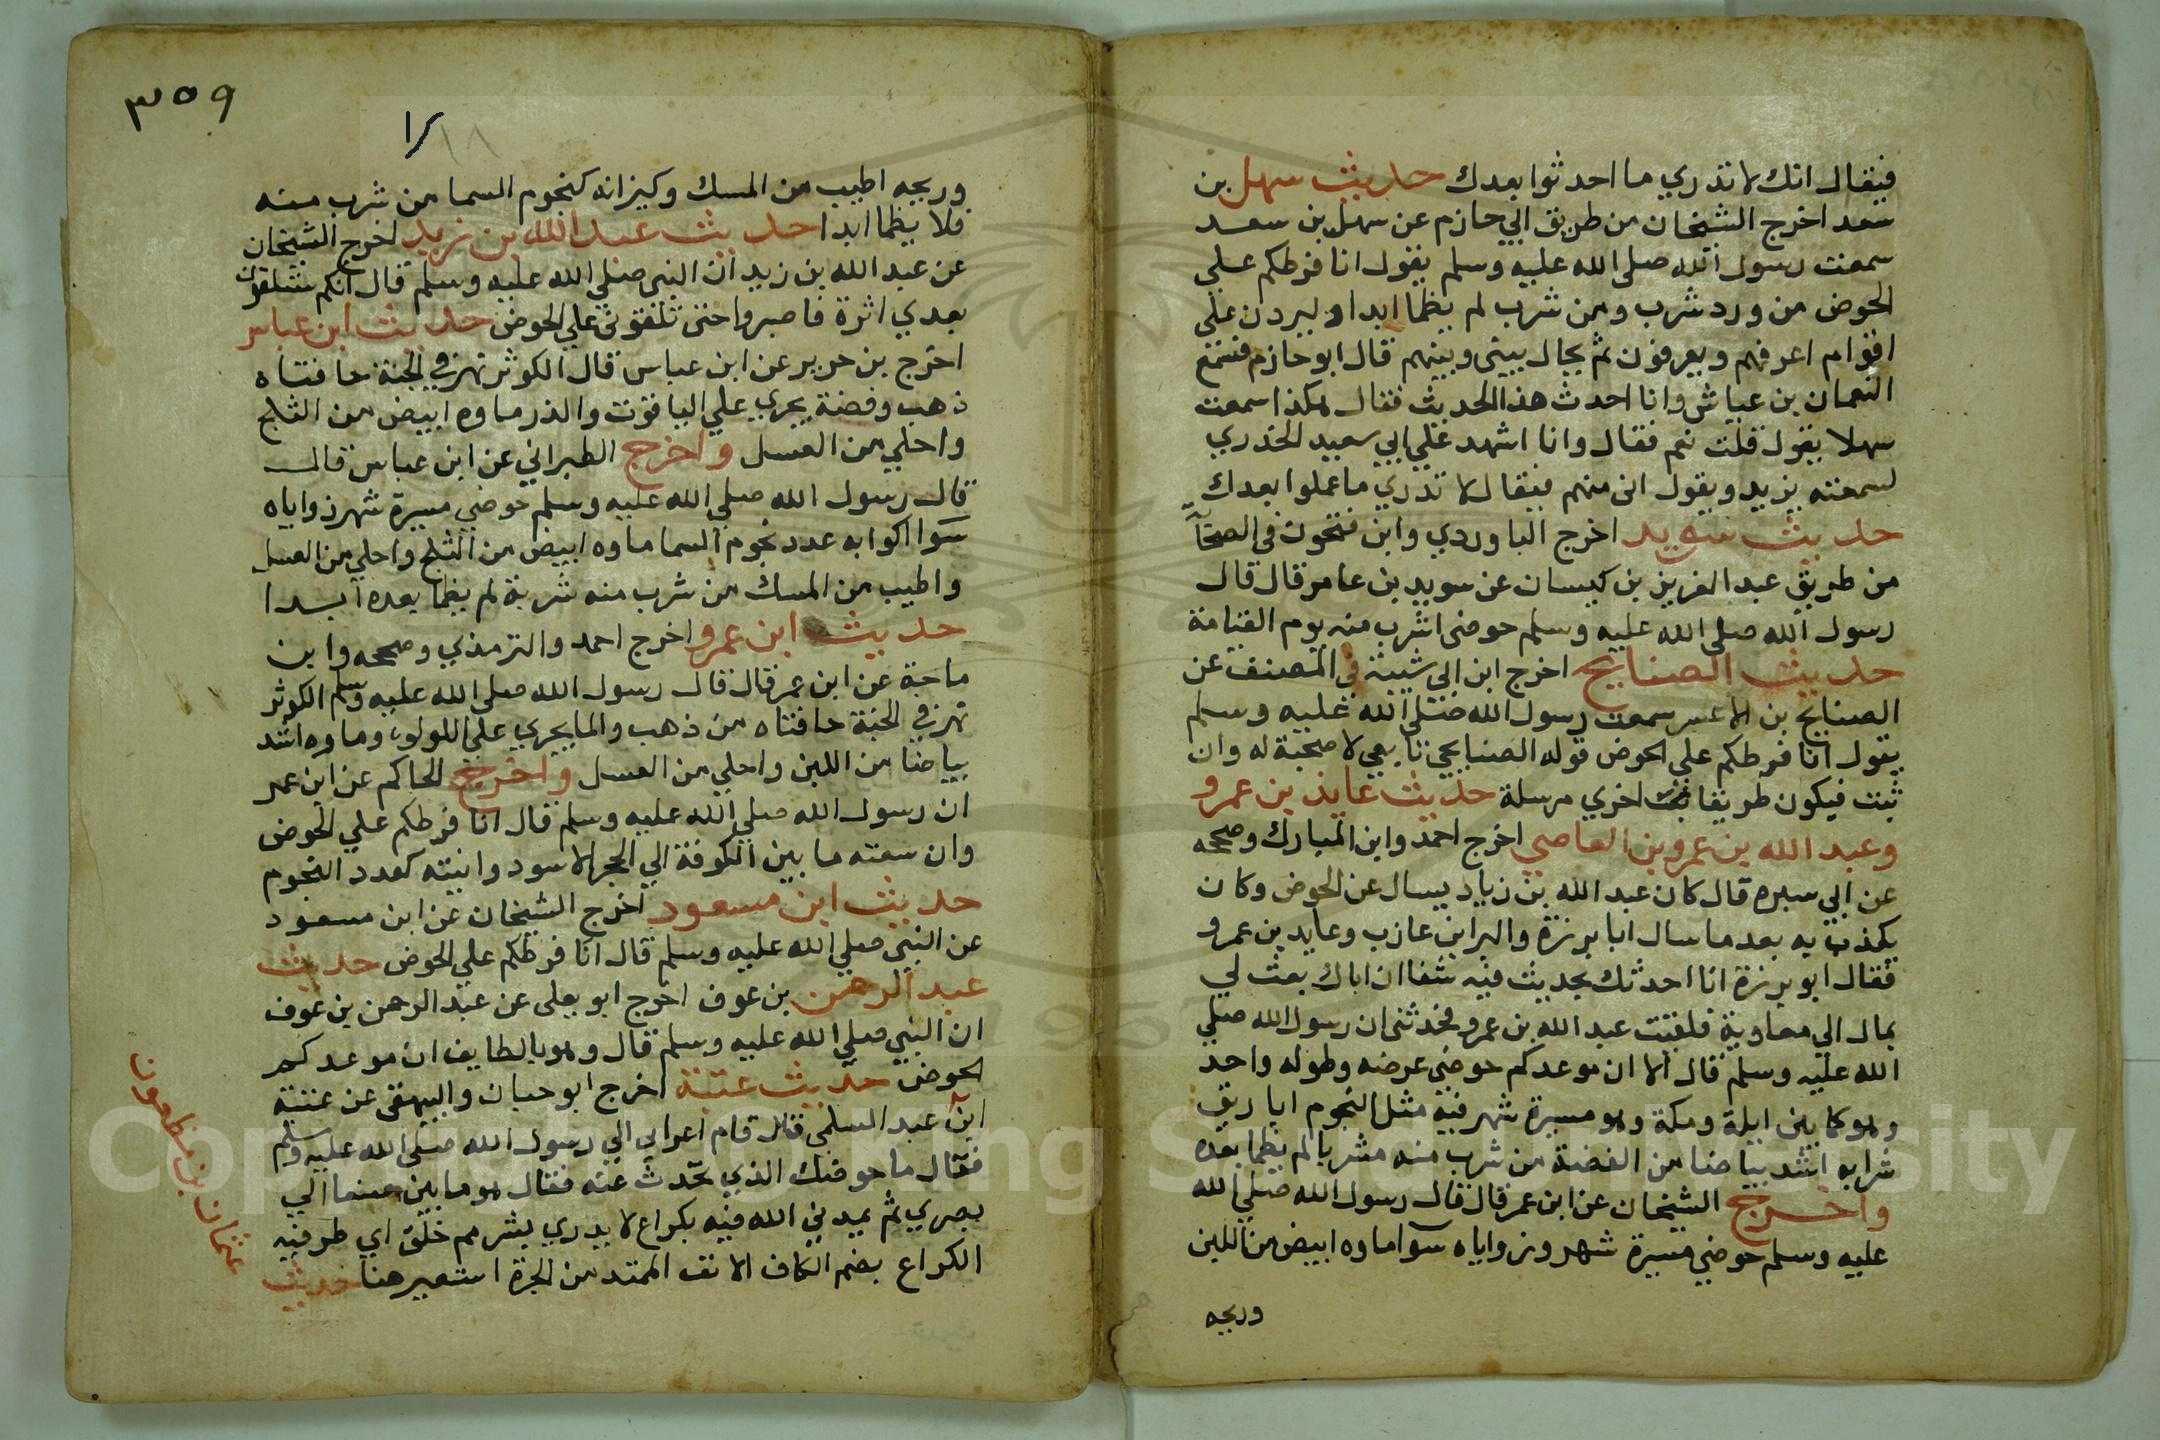 فيقال انك لا تدري ما احدثوا بعدك حديث سهل بن
سعد اخرج الشيخان من طريق ابي حازم عن سهل بن سعد
سمعت رسول الله صلى الله عليه وسلم يقول انا فرطكم علي
الحوض من ورد شرب ومن شرب لم يظما ابدا و ليردن علي
اقوام اعرفهم ويعرفون ثم يحال بيني وبينهم قال ابو حازم فسمع
النعمان بن عياش وانا احدث هذا الحديث فقال هكذا سمعت
سهلا يقول قلت نعم فقال وانا اشهد علي ابي سعيد الخدري
لسمعته يزيد ويقول انى منهم فيقال لا تدري ما عملوا بعدك
حديث سويد اخرج الباوردي وابن فتحون في الصحابة
من طريق عبد العزيز بن كيسان عن سويد بن عامر قال قال
رسول الله صلى الله عليه وسلم حوضى اشرب منه يوم القيامة
حديث الصنابح اخرج ابن ابي شيبة في المصنف عن
الصنابح بن الاعسر سمعت رسول الله صلى الله عليه وسلم
يقول انا فرطكم علي الحوض قوله الصنابحي تابعي لا صحبة له وان
ثبت فيكون طريقا اخري مرسلة حديث عايذ بن عمرو
وعبد الله بن عمرو بن العاصي اخرج احمد وابن المبارك وصححه
عن ابي سبره قال كان عبد الله بن زياد يسال عن الحوض وكان
يكذب به بعد ما سال ابا برزة والبرا بن عازب وعايد بن عمرو
فقال ابو برزة انا احدثك بحديث فيه شفا ان اباك بعث لي
بمال الي معاوية فلقيت عبد الله بن عمرو فحدثنى ان رسول الله صلي
الله عليه وسلم قال الا ان موعدكم حوضي عرضه وطوله واحد
وهو كما بين ايلة ومكة وهو مسيرة شهر فيه مثل النجوم اباريق
شرابه اشد بياضا من الفضة من شرب منه مشربا لم يظما بعده
واخرج الشيخان عن ابن عمر قال قال رسول الله صلي الله
عليه وسلم حوضي مسيرة شهر وزواياه سوا ماوه ابيض من اللبن
وريحه
٣٥٩
وريحه اطيب من المسك وكيزانه كنجوم السما من شرب منه
فلا يظما ابدا حديث عبد الله بن زيد اخرج الشيخان
عن عبد الله بن زيد ان النبى صلي الله عليه وسلم قال انكم ستلقون
بعدي اثرة فاصبروا حتى تلقونى علي الحوض حديث ابن عباس
اخرج بن جرير عن ابن عباس قال الكوثر نهر في الجنة حافتاه
ذهب وفضة يجري علي الياقوت والدر ماوه ابيض من الثلج
واحلي من العسل واخرج الطبراني عن ابن عباس قال
قال رسول الله صلي الله عليه وسلم حوضي مسيرة شهر زواياه
سوا اكوابه عدد نجوم السما ماوه ابيض من الثلج واحلي من العسل
واطيب من المسك من شرب منه شربة لم يظما بعده ابدا
حديث ابن عمرو اخرج احمد والترمذي وصححه وابن
ماجة عن ابن عمر قال قال رسول الله صلي الله عليه وسلم الكوثر
نهر في الجنة حافتاه من ذهب والما يجري علي اللولو وماوه اشد
بياضا من اللبن واحلي من العسل واخرج الحاكم عن ابن عمر
ان رسول الله صلي الله عليه وسلم قال انا فرطكم علي الحوض
وان سعته ما بين الكوفة الي الحجر الاسود وانيته كعدد النجوم
حديث ابن مسعود اخرج الشيخان عن ابن مسعود
عن النبي صلي الله عليه وسلم قال انا فرطكم علي الحوض حديث
عبد الرحمن بن عوف اخرج ابو يعلى عن عبد الرحمن بن عوف
ان النبي صلي الله عليه وسلم قال وهو بالطايف ان موعدكم
الحوض حديث عتبة اخرج ابو حبان والبيهقى عن عتبة
ابن عبد السلمى قال قام اعرابي الي رسول الله صلى الله عليه وسلم
فقال ما حوضك الذي تحدث عنه فقال هو ما بين صنعا الي
بصري ثم يمدني الله فيه بكراع لا يدري بشر مم خلق اي طرفيه
الكراع بضم الكاف الانف الممتد من الحرة استعير هنا حديث
عثمان بن مظعون